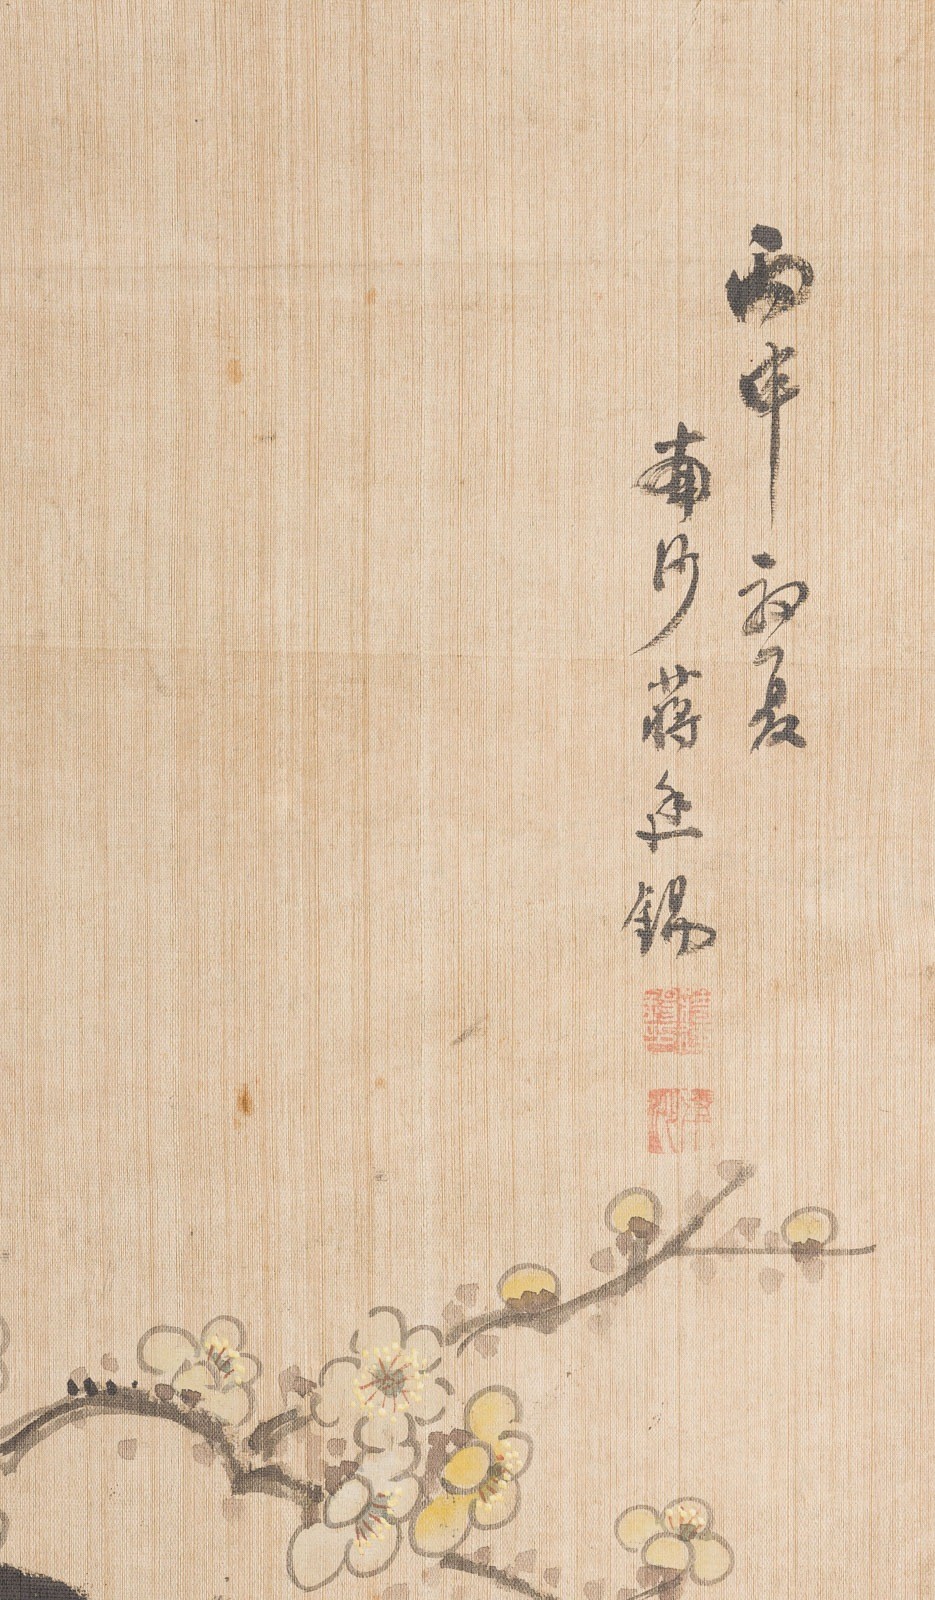 丙申初夏
南沙蒋廷錫